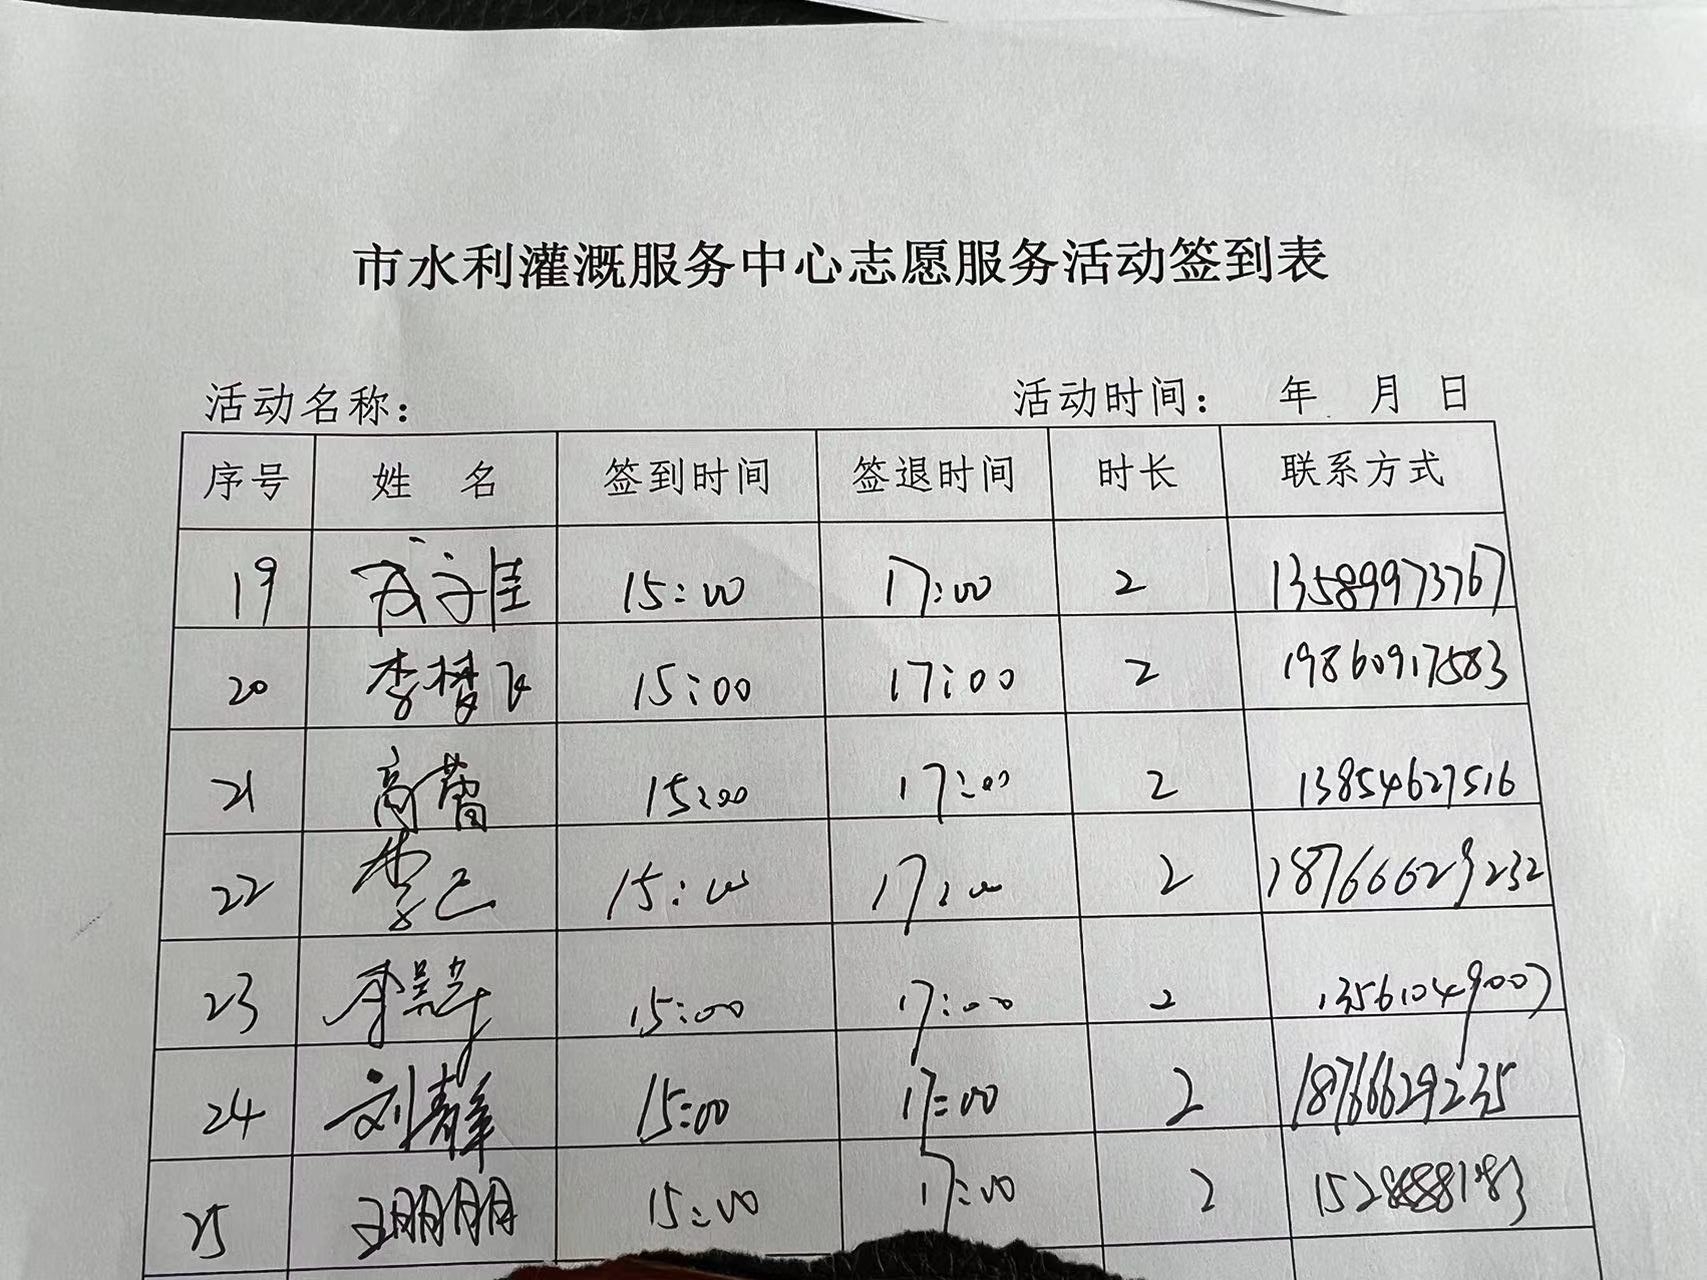 市水利灌溉服务中心志愿服务活动签到表
活动名称: 活动时间: 年 月 日
序号 姓 名 签到时间 签退时间 时长 联系方式
19 15:00 17:00 2 13589973767
20 李梦飞 15:00 17:00 2 19860917583
21 高蕾 15:00 17:00 2 13854627516
22 李己 15:00 17:00 2 18766629232
23 李昊洋 15:00 17:00 2 13561049007
24 刘静 15:00 17:00 2 18766629235
25 王朋朋 15:00 17:00 2